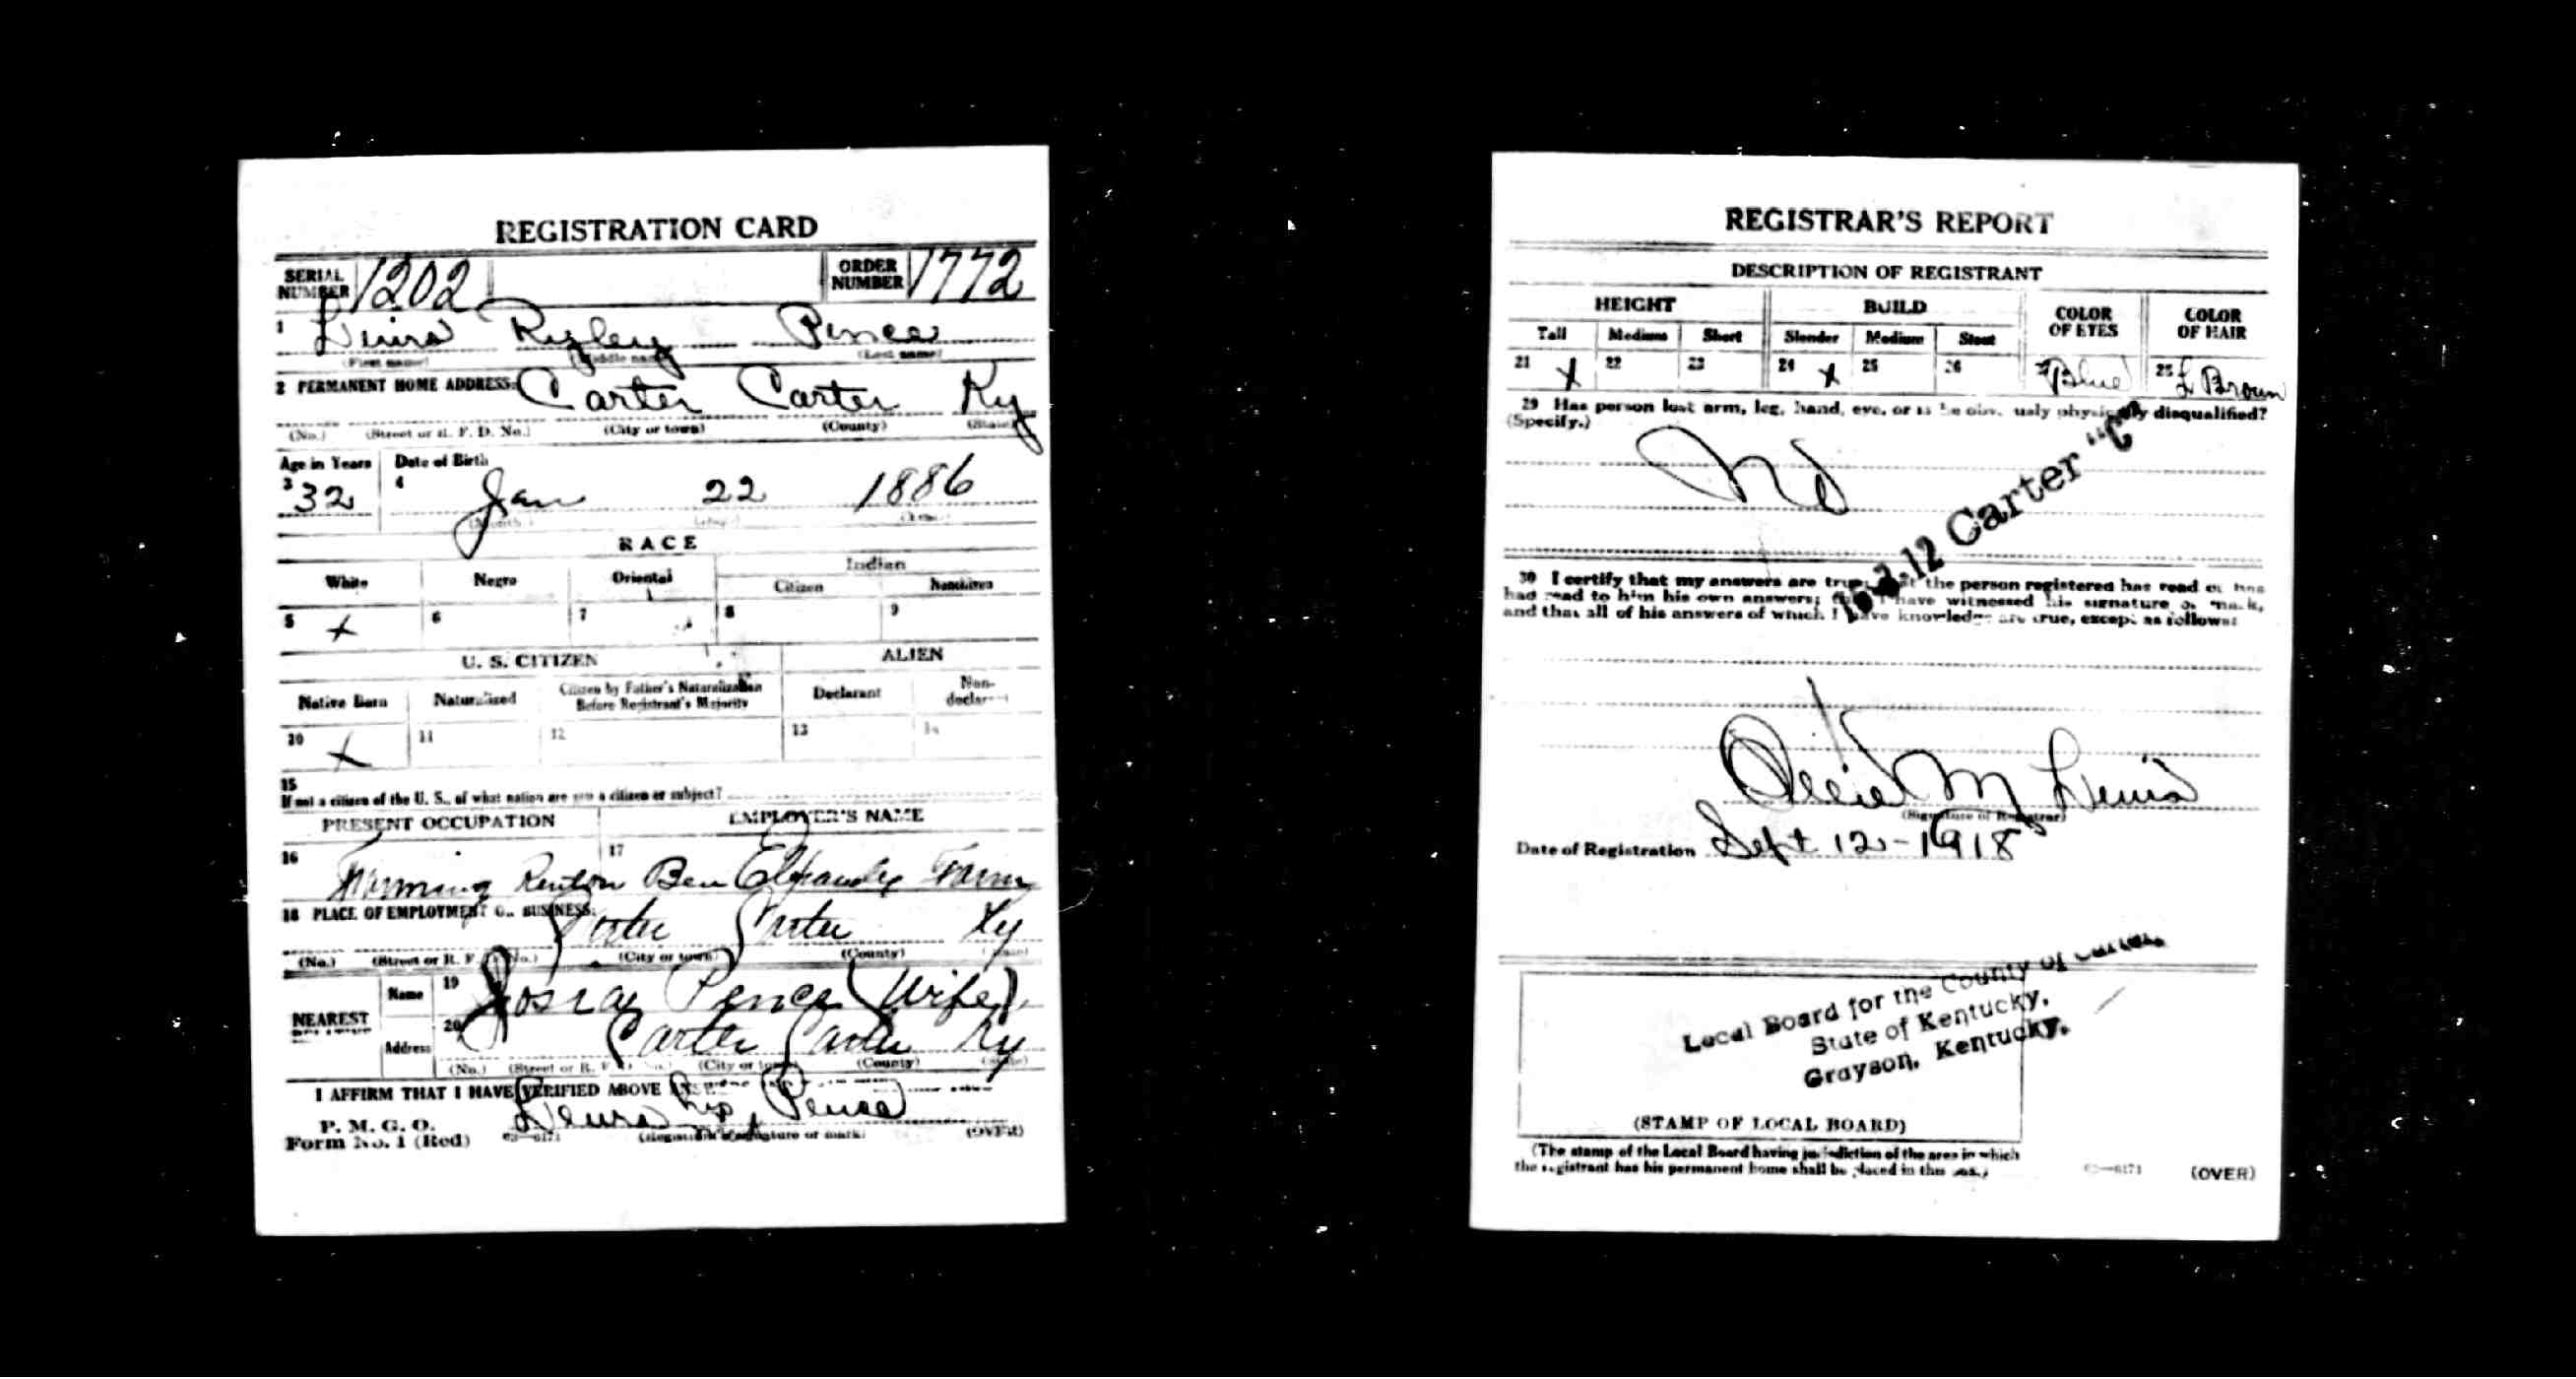 REGISTRATION CARD
SERIAL NUMBER 1202 ORDER NUMBER 1772
1 Rigley Pence
(First name) (Middle name) (Last name)
2 PERMANENT HOME ADDRESS: Carter Carter Ky
(No.) (Street or R. F. D. No.) (City or town) (County) (State)
Age in Years Date of Birth
3 32 4 Jan 22 1886
(Month) (Day) (Year)
RACE
White Negro Oriental Indian
Citizen Noncitizen
5 X 6 7 8 9
U. S. CITIZEN ALIEN
Native Born Naturalized Citizen by Father's Naturalization Before Registrant's Majority Declarant Non-declarant
10 X 11 12 13 14
15
If not a citizen of the U. S., of what nation are you a citizen or subject?
PRESENT OCCUPATION EMPLOYER'S NAME
16 Farming 17 Ben Farm
18 PLACE OF EMPLOYMENT OR BUSINESS:
Carter Carter Ky
(No.) (Street or R. F. D. No.) (City or town) (County) (State)
NEAREST RELATIVE Name 19 Pence (Wife)
Address 20 Carter Carter Ky
(No.) (Street or R. F. D. No.) (City or town) (County) (State)
I AFFIRM THAT I HAVE VERIFIED ABOVE
P. M. G. O.
Form No. 1 (Red) 03—6171 (Registrant's signature or mark) (OVER)
Pence
REGISTRAR'S REPORT
DESCRIPTION OF REGISTRANT
HEIGHT BUILD COLOR OF EYES COLOR OF HAIR
Tall Medium Short Slender Medium Stout
21 X 22 23 24 X 25 26 27 Blue 28 L Brown
29 Has person lost arm, leg, hand, eye, or is he obviously physically disqualified?
(Specify.)
No
Carter "C"
30 I certify that my answers are true; that the person registered has read or has
had read to him his own answers; that I have witnessed his signature or mark,
and that all of his answers of which I have knowledge are true, except as follows:
M Lewis
(Signature of Registrar)
Date of Registration Sept 12-1918
Local Board for the County of Carter,
State of Kentucky,
Grayson, Kentucky.
(STAMP OF LOCAL BOARD)
(The stamp of the Local Board having jurisdiction of the area in which
the registrant has his permanent home shall be placed in this box.)
03—6171 (OVER)